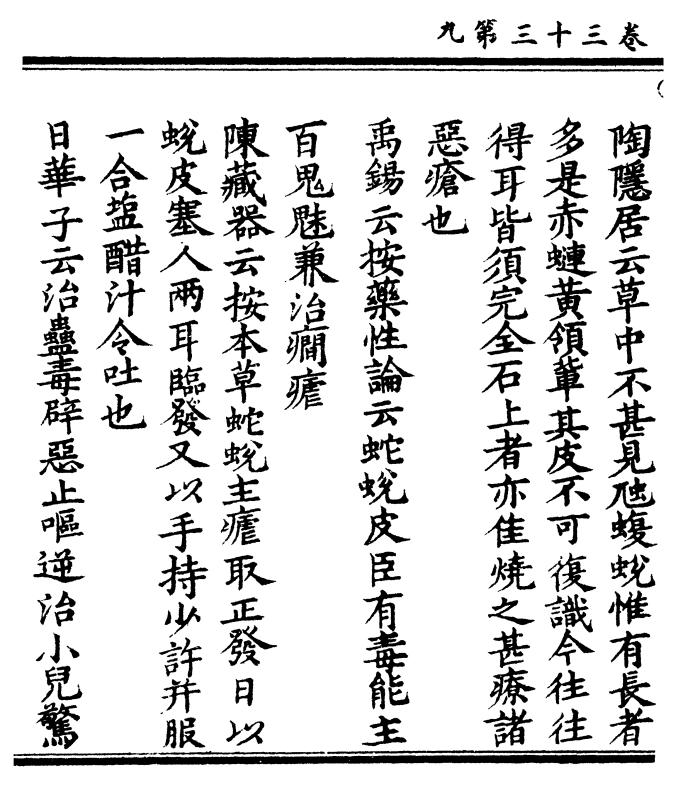 卷三十三第九
陶隱居云草中不甚見虺蝮蛻惟有長者
多是赤蠊黃頷輩其皮不可復識今往往
得耳皆須完全石上者亦佳燒之甚療諸
惡瘡也
禹錫云按藥性論云蛇蛻皮臣有毒能主
百鬼魅兼治癇瘧
陳藏器云按本草蛇蛻主瘧取正發日以
蛻皮塞人兩耳臨發又以手持少許并服
一合盐醋汁令吐也
日華子云治蠱毒辟惡止嘔逆治小兒驚